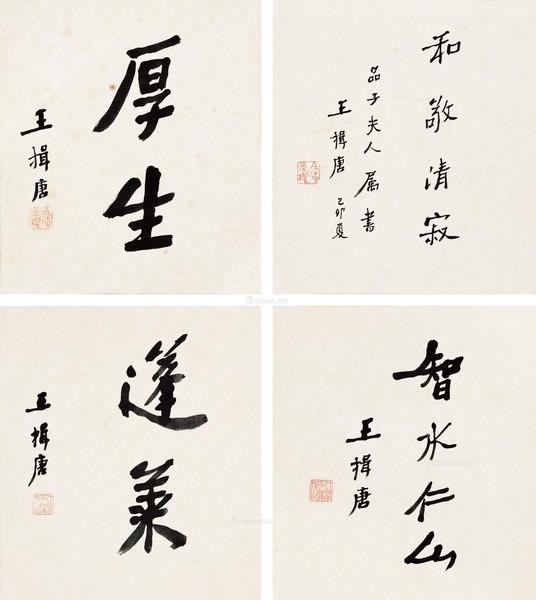 厚生
王揖唐
和敬清寂
品子夫人属書
王揖唐 己卯夏
蓬萊
王揖唐
智水仁山
王揖唐